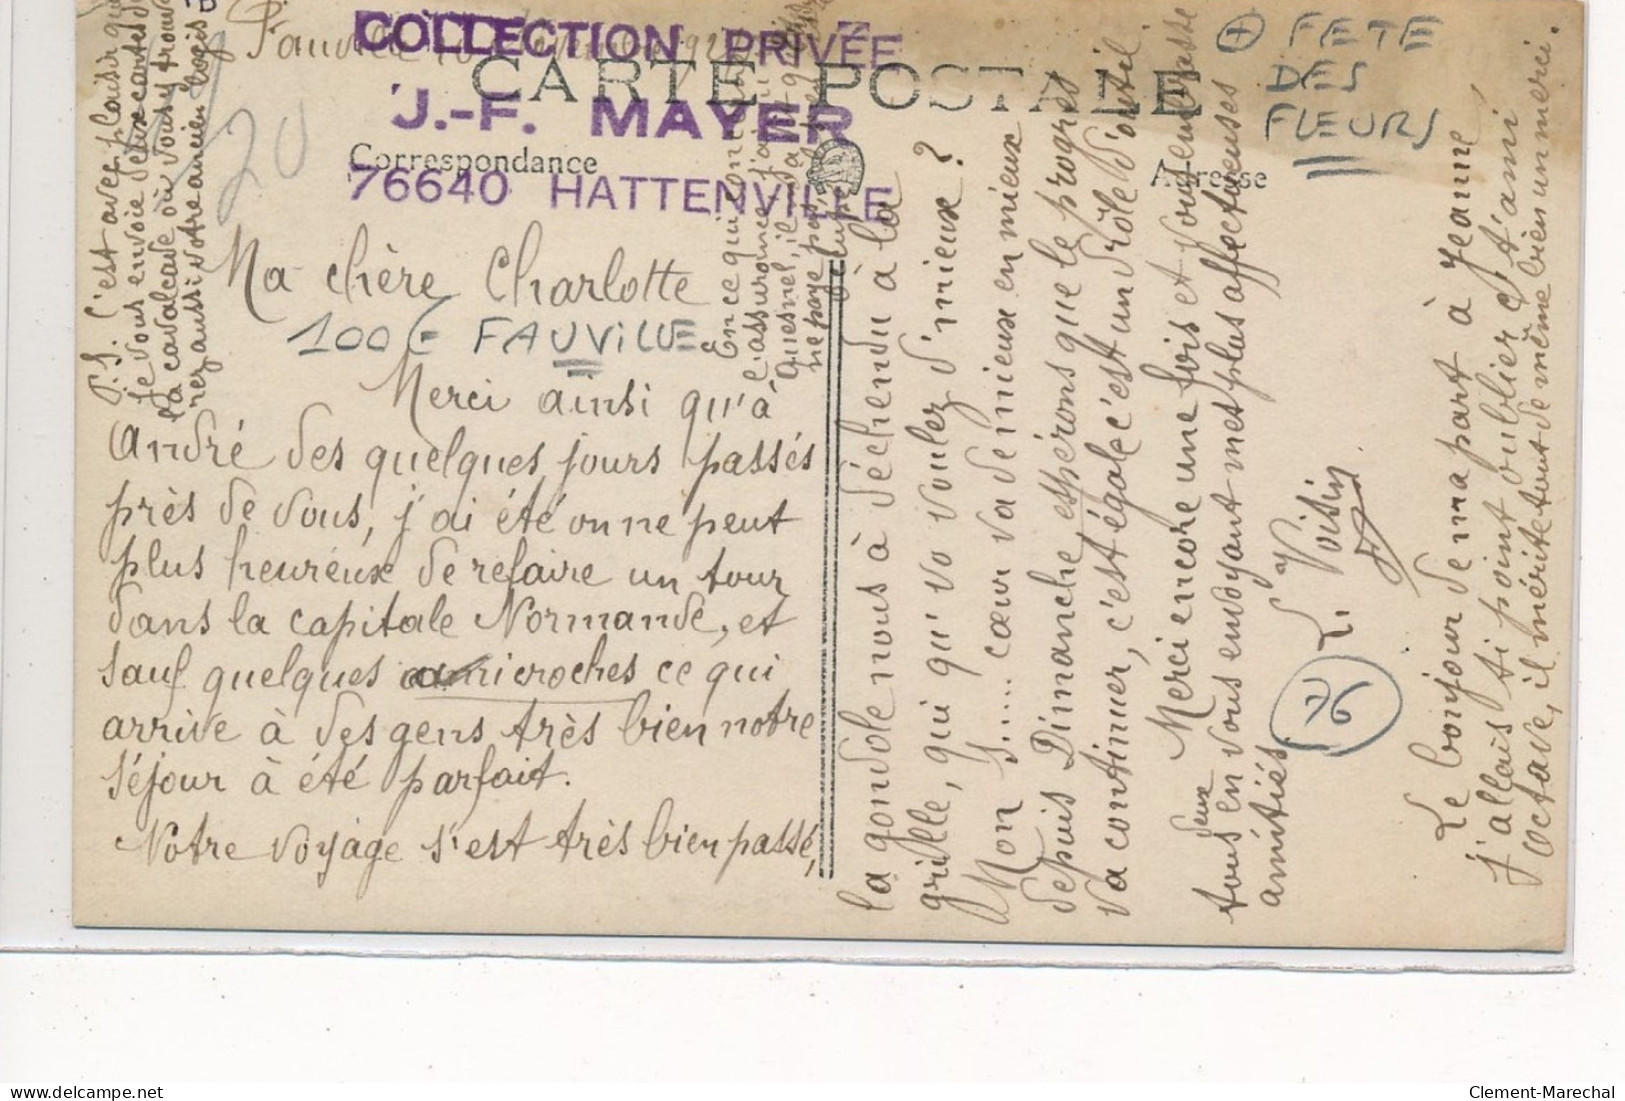 COLLECTION PRIVÉE
J.-F. MAYER
76640 HATTENVILLE
CARTE POSTALE
Correspondance
Adresse
+ FETE
DES
FLEURS
20
Fauville
Ma chère Charlotte
100 F FAUVILLE
Merci ainsi qu'à
André des quelques jours passés
près de vous, j'ai été on ne peut
plus heureux de refaire un tour
dans la capitale Normande, et
sauf quelques anicroches ce qui
arrive à des gens très bien notre
séjour à été parfait.
Notre voyage s'est très bien passé,
la gondole nous à déchendu à la
grille, qui qu'vo voulez d'mieux ?
Mon s..... cœur va de mieux en mieux
depuis Dimanche espérons que le progrès
va continuer, c'est égale c'est un drôle d'outil.
Merci encore une fois et vous embrasse
tous deux en vous envoyant mes plus affectueuses
amitiés.
L. Voisin
76
Le bonjour de ma part à Jeanne
j'allais ti point oublier c't'ami
octave, il mérite tout de même bien un merci.
P.S. C'est avec plaisir que
je vous envoie deux cartes de
la cavalcade où vous y trouve
rez aussi votre ancien logis
En ce qui concerne
l'assurance j'ai
Quesnel, il
ne paye pas